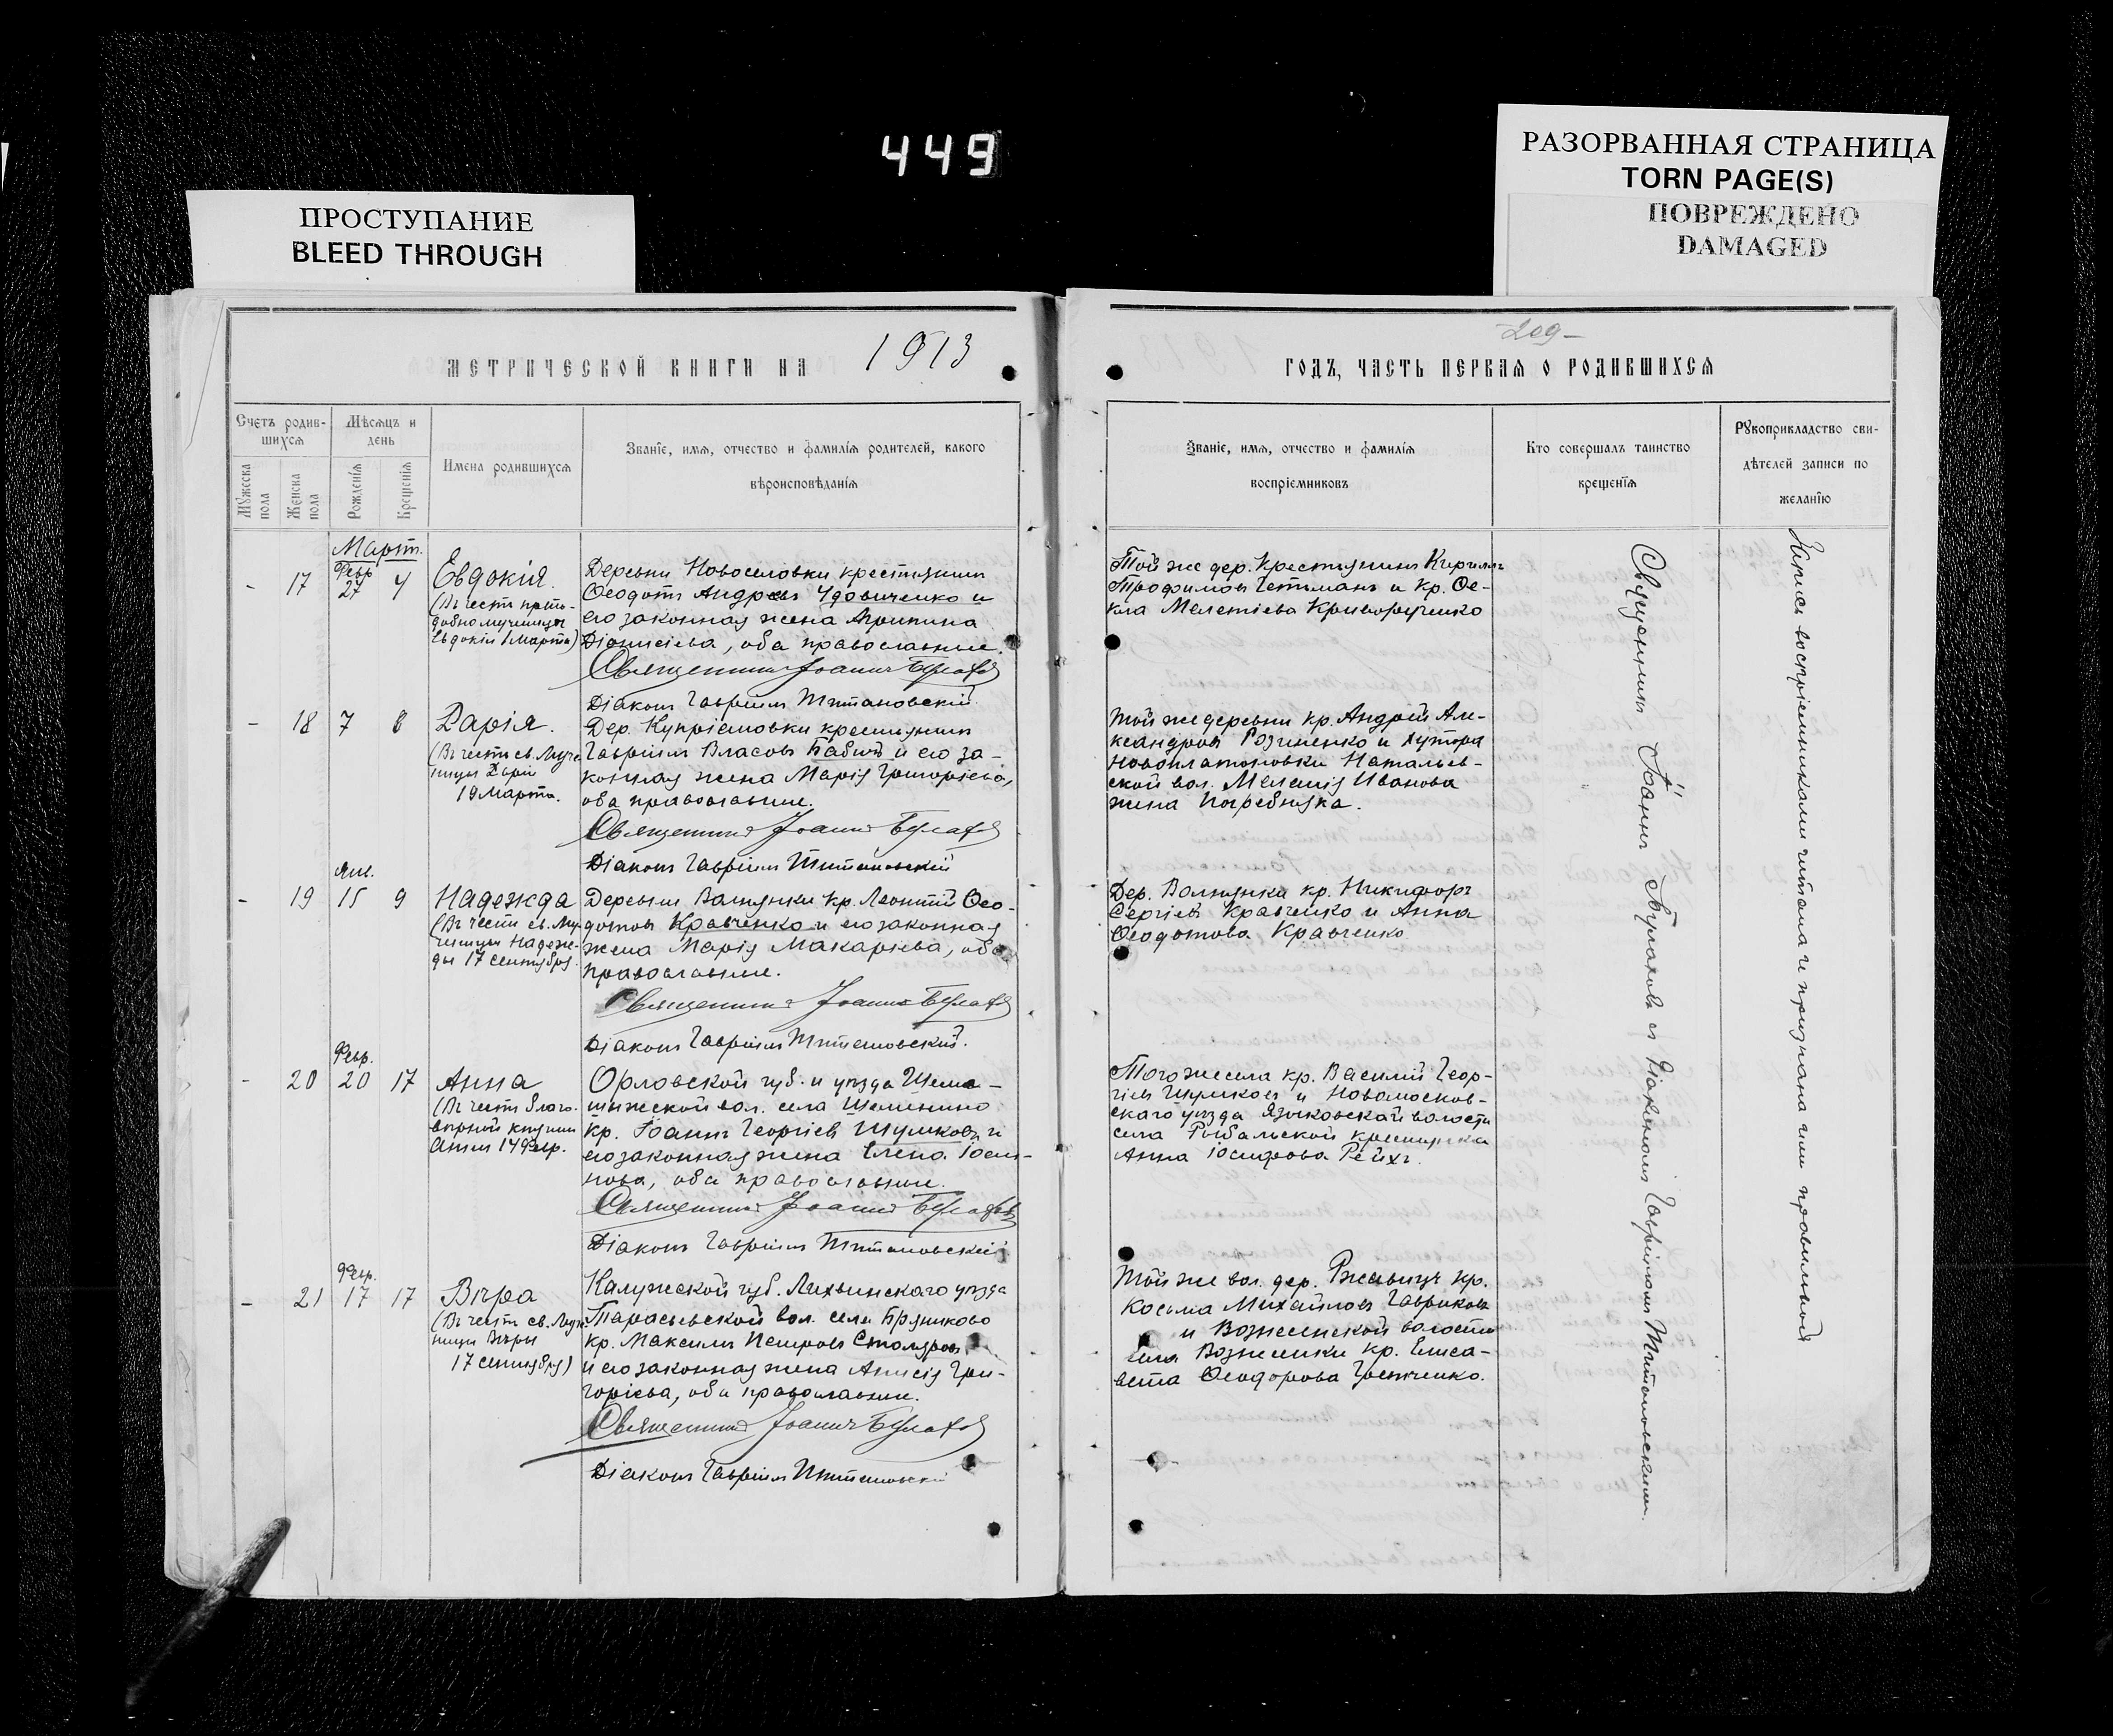 449
ПРОСТУПАНИЕ
BLEED THROUGH
РАЗОРВАННАЯ СТРАНИЦА
TORN PAGE(S)
ПОВРЕЖДЕНО
DAMAGED
МЕТРИЧЕСКОЙ КНИГИ НА 1913
Счетъ родив-
шихся
Мѣсяцъ и
день
Мужеска пола
Женска пола
Рожденія
Крещенія
Имена родившихся
Званіе, имя, отчество и фамилія родителей, какого
вѣроисповѣданія
Март.
Февр
- 17 27 4 Евдокія
(Въ честь препо-
добномученицы
Евдокіи 1 Марта)
Деревни Новоселовки крестьянинъ
Ѳеодотъ Андреевъ Удовиченко и
его законная жена Агрипина
Діонисіева, оба православные.
Священникъ Іоаннъ Булаховъ
Діаконъ Гавріилъ
- 18 7 8 Дарія.
(Въ честь св. Муче-
ницы Даріи
19 Марта.
Дер. Купріяновки крестьянинъ
Гавріилъ Власовъ Бабичъ и его за-
конная жена Марія Григоріева,
оба православные.
Священникъ Іоаннъ Булаховъ
Діаконъ Гавріилъ
Янв.
- 19 15 9 Надежда
(Въ честь св. Му-
ченицы Надеж-
ды 17 Сентября.
Деревни кр. Леонтій Ѳео-
дотовъ Кравченко и его законная
жена Марія Макаріева, оба
православные.
Священникъ Іоаннъ Булаховъ
Діаконъ Гавріилъ
Февр.
- 20 20 17 Анна
(Въ честь благо-
вѣрной княгини
Анны 14 Февр.
Орловской губ. и уѣзда
вол. села
кр. Іоаннъ Георгіевъ Шумковъ и
его законная жена Елена
оба православные.
Священникъ Іоаннъ Булаховъ
Діаконъ Гавріилъ
Февр.
- 21 17 17 Вѣра
(Въ честь св. Муче-
ницы Вѣры
17 Сентября)
Калужской губ. Лихвинскаго уѣзда
Тарасьевской вол. села Бряниково
кр. Максимъ Петровъ Столяровъ
и его законная жена Анисія Гри-
горіева, оба православные.
Священникъ Іоаннъ Булаховъ
Діаконъ Гавріилъ
-209-
ГОДЪ, ЧАСТЬ ПЕРВАЯ О РОДИВШИХСЯ
Званіе, имя, отчество и фамилія
воспріемниковъ
Кто совершалъ таинство
крещенія
Рукоприкладство сви-
дѣтелей записи по
желанію
Той же дер. Крестьянинъ Кириллъ
Трофимовъ Гетьманъ и Кр. Ѳе-
кла Мелетіева Криворученко
Той же деревни кр. Андрей Але-
ксандровъ и хутора
Новоплатоновки Натальев-
ской вол. Меланія Иванова
жена Погребняка.
Дер. кр. Никифоръ
Сергіевъ Кравченко и Анна
Ѳеодотова Кравченко
Того же села кр. Василій Геор-
гіевъ Шумковъ и Новомосков-
скаго уѣзда Языковской волости
села Рыбальской крестьянка
Анна Іосифова Рейхъ.
Той же вол. дер. Ржавецъ кр.
Косьма Михайловъ Гавриковъ
и Вознесенской волости
села Вознесенки кр. Елиса-
вета Ѳеодорова
Священникъ Іоаннъ Булаховъ съ Діакономъ Гавріиломъ
Запись воспріемниками читана и признана ими правильной